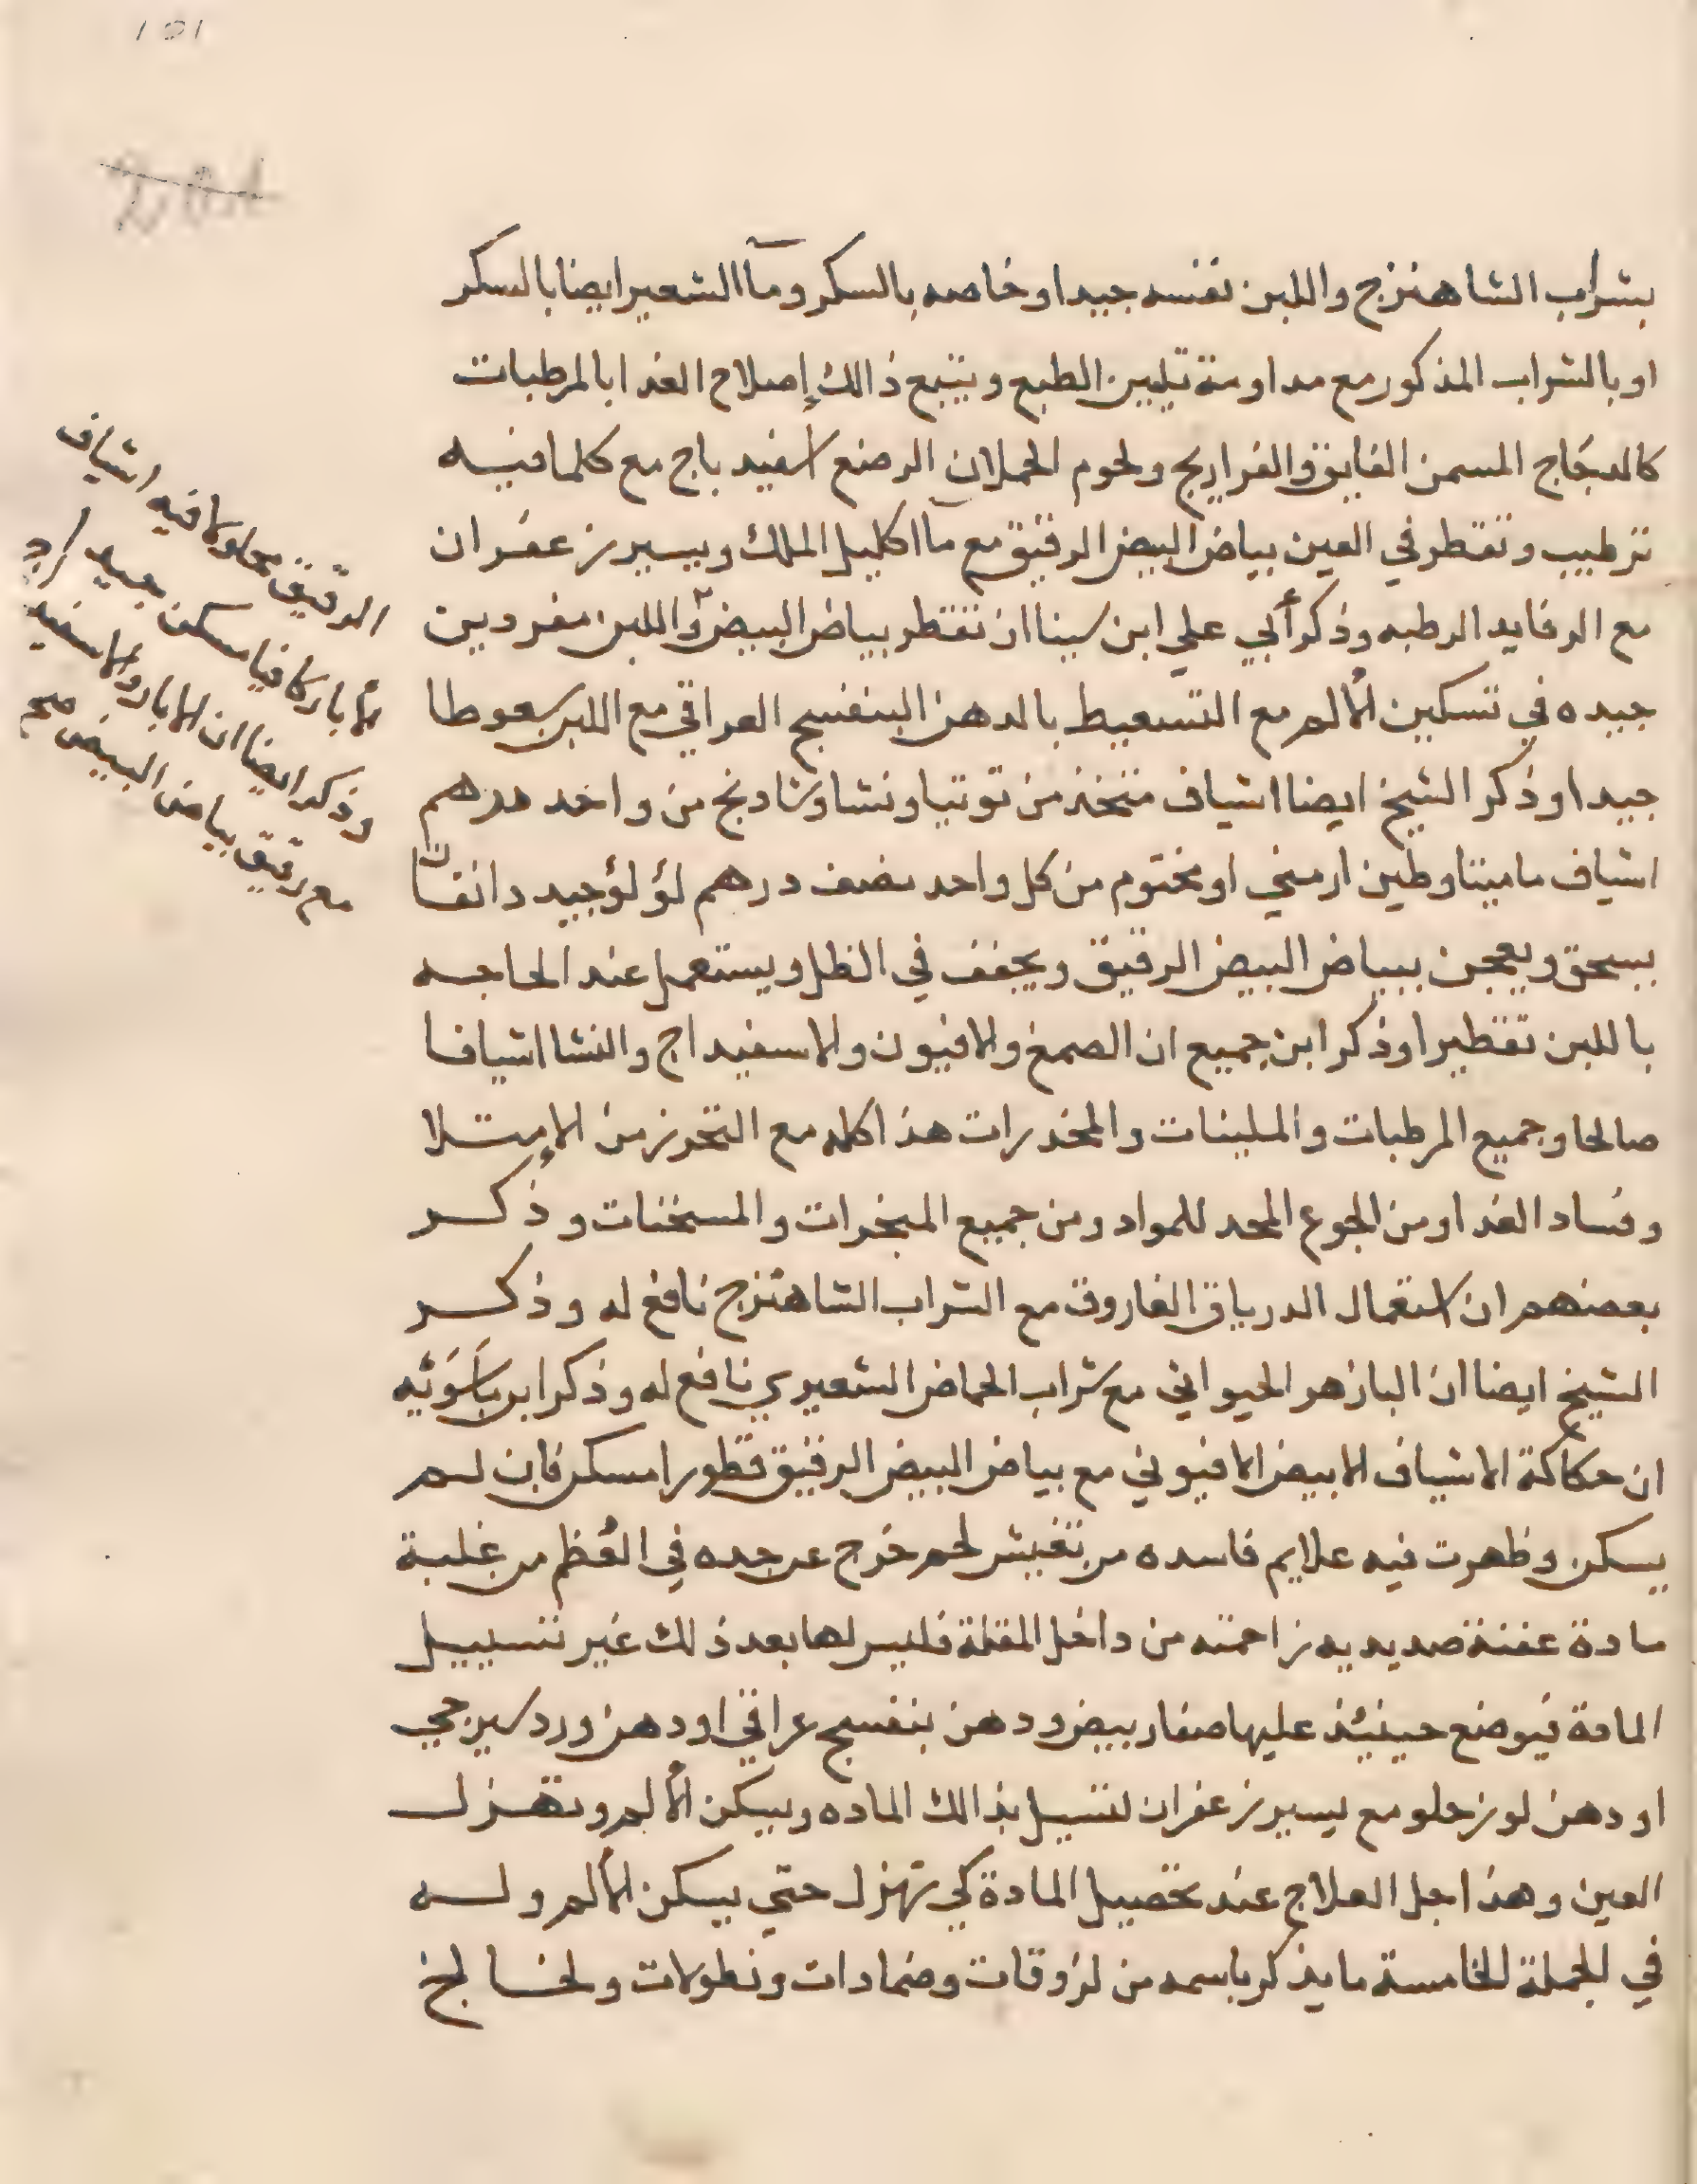 بشراب الشاهترج واللبن نفسه جيدا وخاصه بالسكر ومآ الشعير ايضا بالسكر
او بالشراب المذكور مع مداومة تليين الطبع ويتبع ذالك إصلاح الغذا بالمرطبات
كالدجاج المسمن الفايق والفراريج ولحوم الحملان الرضع اسفيد باج مع كلما فيه
ترطيب وتقطر في العين بياض البيض الرقيق مع مآ اكليل الملك ويسير زعفران
مع الرفايد الرطبه وذكر أبي علي ابن سينا ان تقطر بياض البيض واللبن مفردين
جيده في تسكين الألم مع التسعيط بالدهن البنفسج العراقي مع اللبن سعوطا
جيدا وذكر الشيخ ايضا اشياف متخذ من توتيا ونشا وشادنج من واحد درهم
اشياف ماميتا وطين ارمني او مختوم من كل واحد نصف درهم لؤلؤ جيد دانقان
يسحق ويعجن ببياض البيض الرقيق ويجفف في الظل ويستعمل عند الحاجه
باللبن تقطيرا وذكر ابن جميع ان الصمغ والافيون والاسفيداج والنشا اشيافا
صالحا وجميع المرطبات والملينات والمخدرات هذا كله مع التحرز من الإمتلا
وفساد الغذا ومن الجوع المحد للمواد ومن جميع المبخرات والمسخنات وذكر
بعضهم ان استعمال الدرياق الفاروق مع الشراب الشاهترج نافع له وذكر
الشيخ ايضا ان البازهر الحيواني مع شراب الحماض الشعيري نافع له وذكر ابن
ان حكاكة الاشياف الابيض الافيوني مع بياض البيض الرقيق قطورا مسكن فان لم
يسكن وظهرت فيه علايم فاسده من لحم خرج عن حده في العظم من غلبة
مادة عفنة صديديه زاحمته من داخل المقلة فليس لها بعد ذلك غير تسييل
المادة فيوضع حينئذ عليها صفار بيض ودهن بنفسج عراقي او دهن ورد سيرجي
او دهن لوز حلو مع يسير زعفران لتسيل بذالك الماده ويسكن الألم وتهزل
العين وهذا جل العلاج عند تحصيل المادة كي تهزل حتي يسكن الألم وله
في الجملة الخامسة ما يذكر باسمه من لزوقات وضمادات ونطولات ولخالخ
الرقيق محلولا فيه اشياف
الأبار كافيا مسكن جيد
وذكر ايضا ان الابار والاسفيد
مع رقيق بياض البيض صح